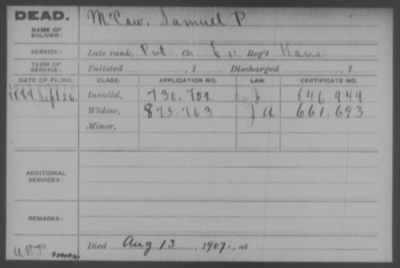 DEAD.
NAME OF SOLDIER: McCaw, Samuel P.
SERVICE: Late rank, Pvt Co. E 11 Reg't Kans
TERM OF SERVICE: Enlisted , 1 Discharged , 1
DATE OF FILING. CLASS. APPLICATION NO. LAW. CERTIFICATE NO.
Invalid, 646.949
Widow, 875.763 661.693
Minor,
ADDITIONAL SERVICES:
REMARKS:
Died Aug 13, 1907, at